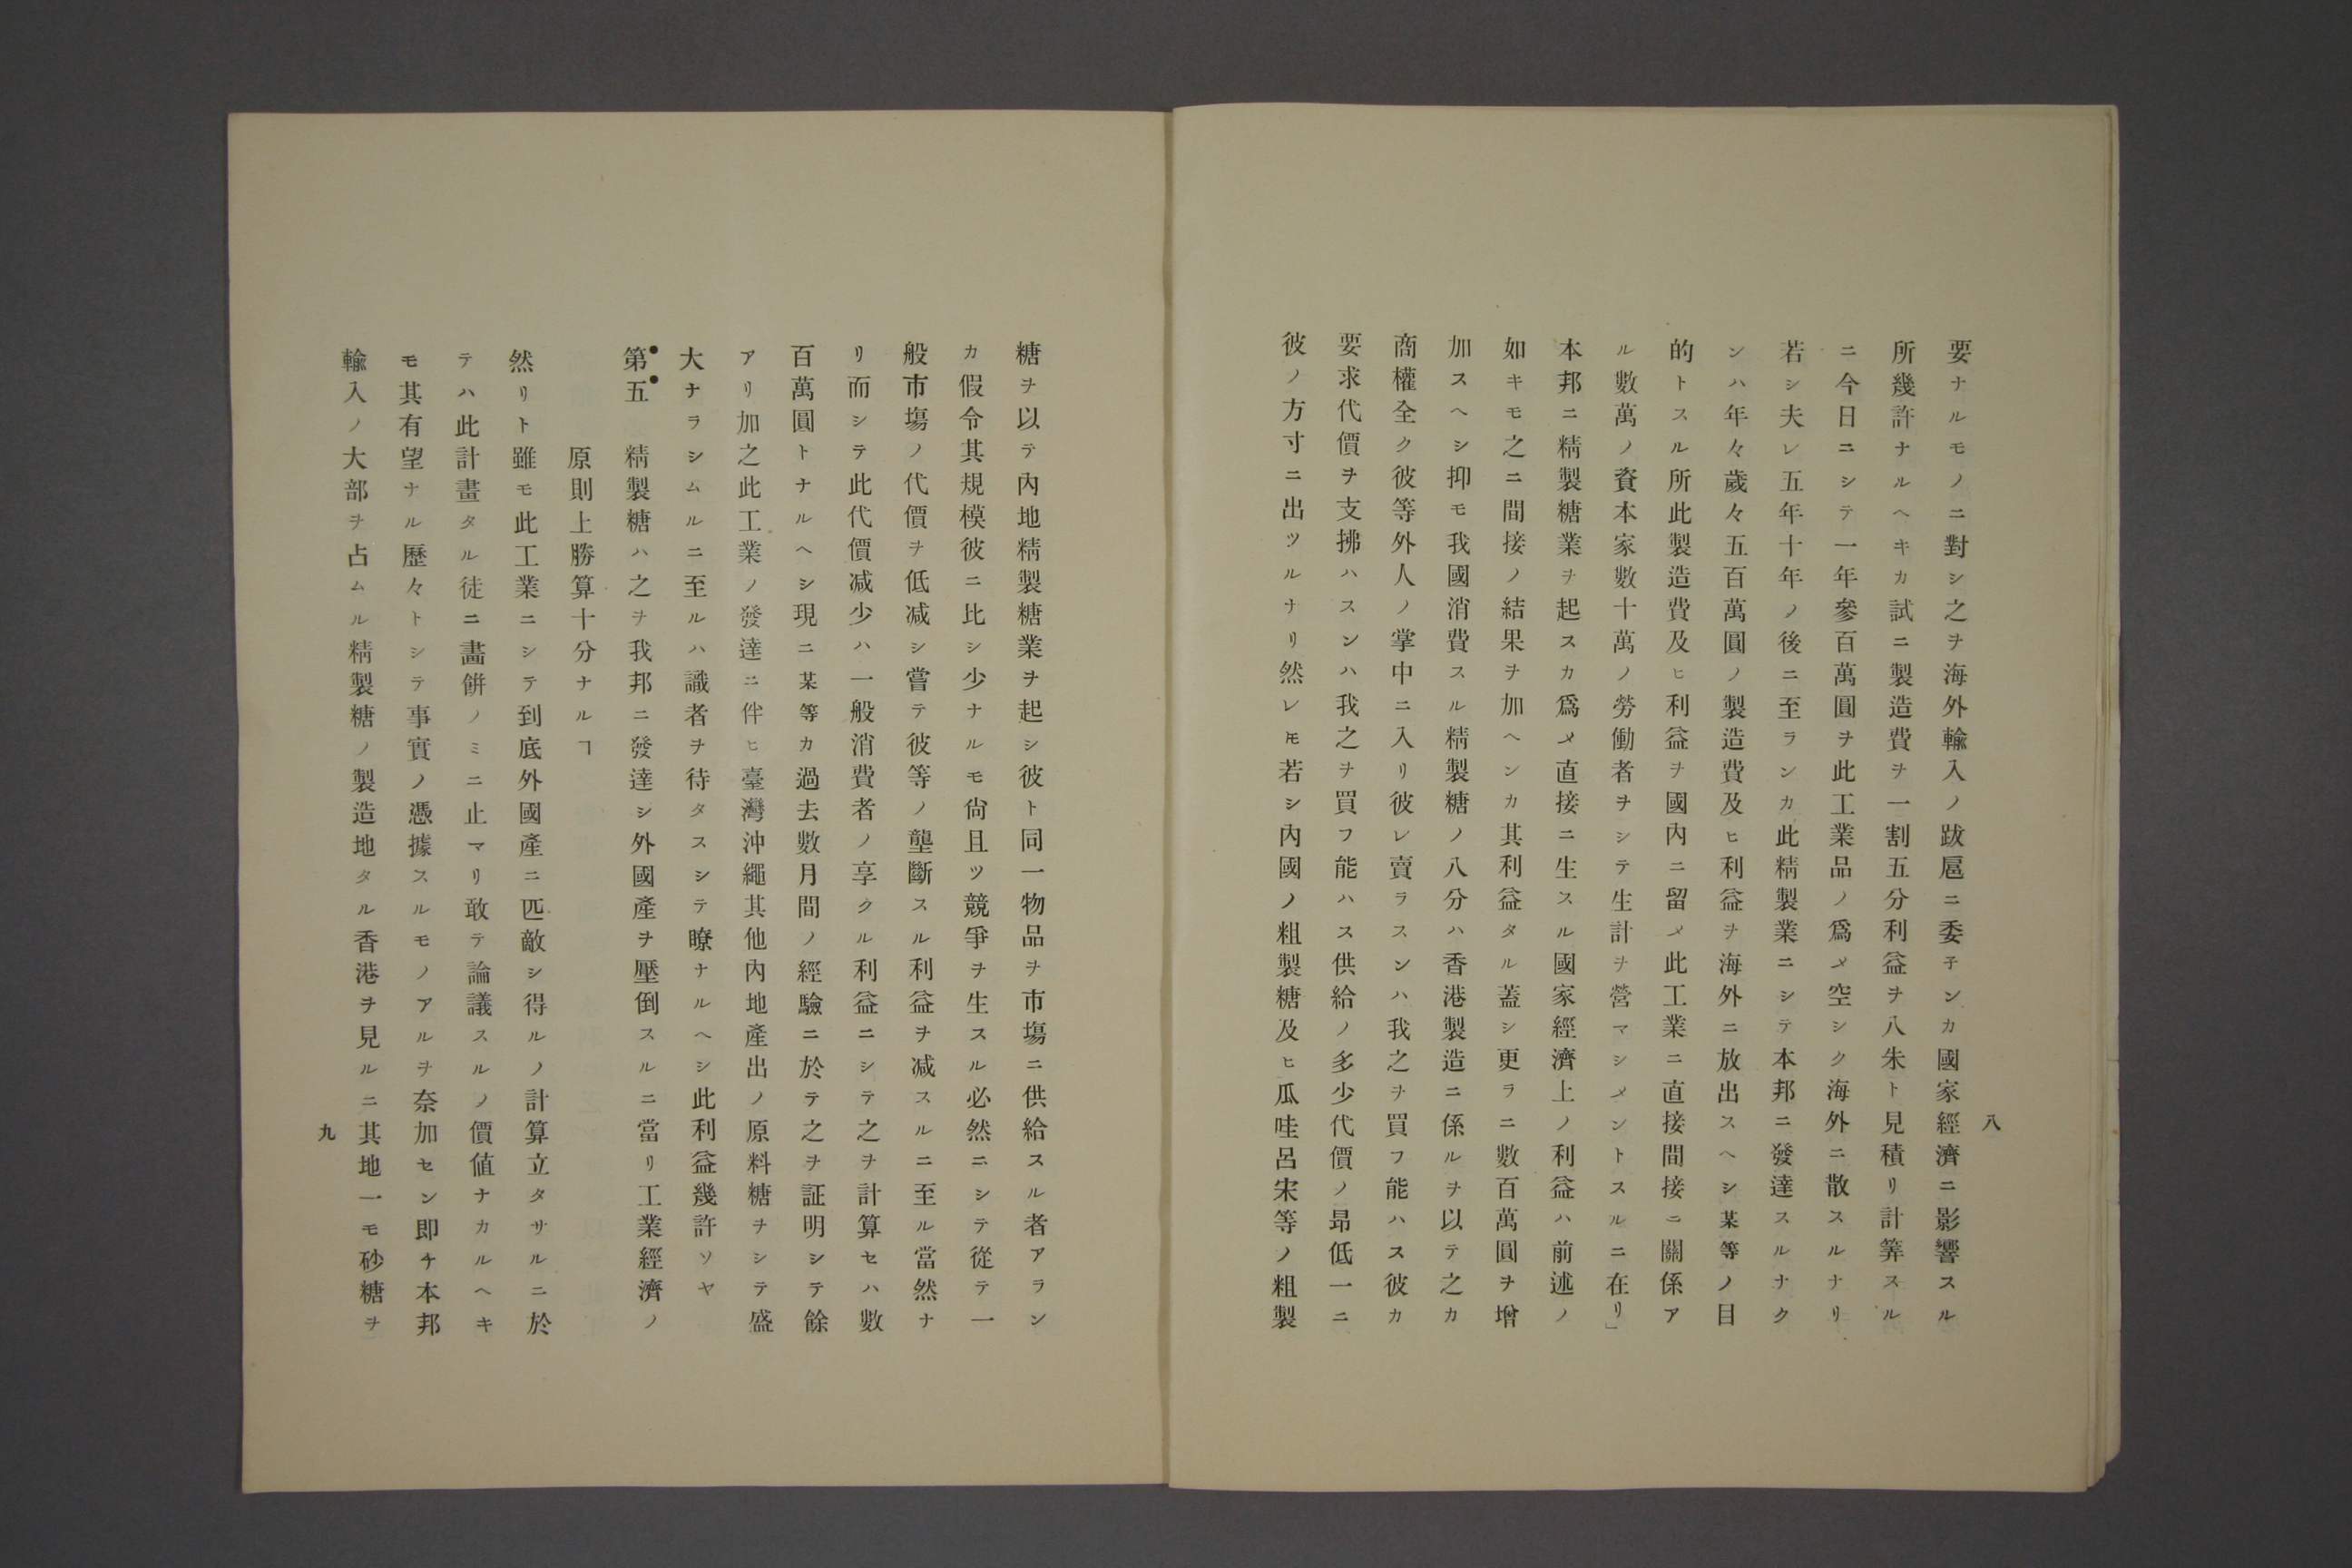 八
要ナルモノニ對シ之ヲ海外輸入ノ跋扈ニ委子ンカ國家經濟ニ影響スル
所幾許ナルヘキカ試ニ製造費ヲ一割五分利益ヲ八朱ト見積リ計筭スル
ニ今日ニシテ一年參百萬圓ヲ此工業品ノ爲メ空シク海外ニ散スルナリ
若シ夫レ五年十年ノ後ニ至ランカ此精製業ニシテ本邦ニ發達スルナク
ンハ年々歲々五百萬圓ノ製造費及ヒ利益ヲ海外ニ放出スヘシ某等ノ目
的トスル所此製造費及ヒ利益ヲ國內ニ留メ此工業ニ直接間接ニ關係ア
ル數萬ノ資本家數十萬ノ勞働者ヲシテ生計ヲ營マシメントスルニ在リ」
本邦ニ精製糖業ヲ起スカ爲メ直接ニ生スル國家經濟上ノ利益ハ前述ノ
如キモ之ニ間接ノ結果ヲ加ヘンカ其利益タル蓋シ更ラニ數百萬圓ヲ增
加スヘシ抑モ我國消費スル精製糖ノ八分ハ香港製造ニ係ルヲ以テ之カ
商權全ク彼等外人ノ掌中ニ入リ彼レ賣ラスンハ我之ヲ買フ能ハス彼カ
要求代價ヲ支拂ハスンハ我之ヲ買フ能ハス供給ノ多少代價ノ昻低一ニ
彼ノ方寸ニ出ツルナリ然レ𪜈若シ內國ノ粗製糖及ヒ瓜哇呂宋等ノ粗製
糖ヲ以テ內地精製糖業ヲ起シ彼ト同一物品ヲ市塲ニ供給スル者アラン
カ假令其規模彼ニ比シ少ナルモ尙且ツ競爭ヲ生スル必然ニシテ從テ一
般市塲ノ代價ヲ低减シ嘗テ彼等ノ壟斷スル利益ヲ减スルニ至ル當然ナ
リ而シテ此代價减少ハ一般消費者ノ享クル利益ニシテ之ヲ計算セハ數
百萬圓トナルヘシ現ニ某等カ過去數月間ノ經驗ニ於テ之ヲ証明シテ餘
アリ加之此工業ノ發達ニ伴ヒ臺灣沖繩其他內地產出ノ原料糖ヲシテ盛
大ナラシムルニ至ルハ識者ヲ待タスシテ瞭ナルヘシ此利益幾許ソヤ
第五　精製糖ハ之ヲ我邦ニ發達シ外國產ヲ壓倒スルニ當リ工業經濟ノ
原則上勝算十分ナルヿ
然リト雖モ此工業ニシテ到底外國產ニ匹敵シ得ルノ計算立タサルニ於
テハ此計畫タル徒ニ畵餠ノミニ止マリ敢テ論議スルノ價値ナカルヘキ
モ其有望ナル歷々トシテ事實ノ憑據スルモノアルヲ奈加セン即チ本邦
輸入ノ大部ヲ占ムル精製糖ノ製造地タル香港ヲ見ルニ其地一モ砂糖ヲ
九